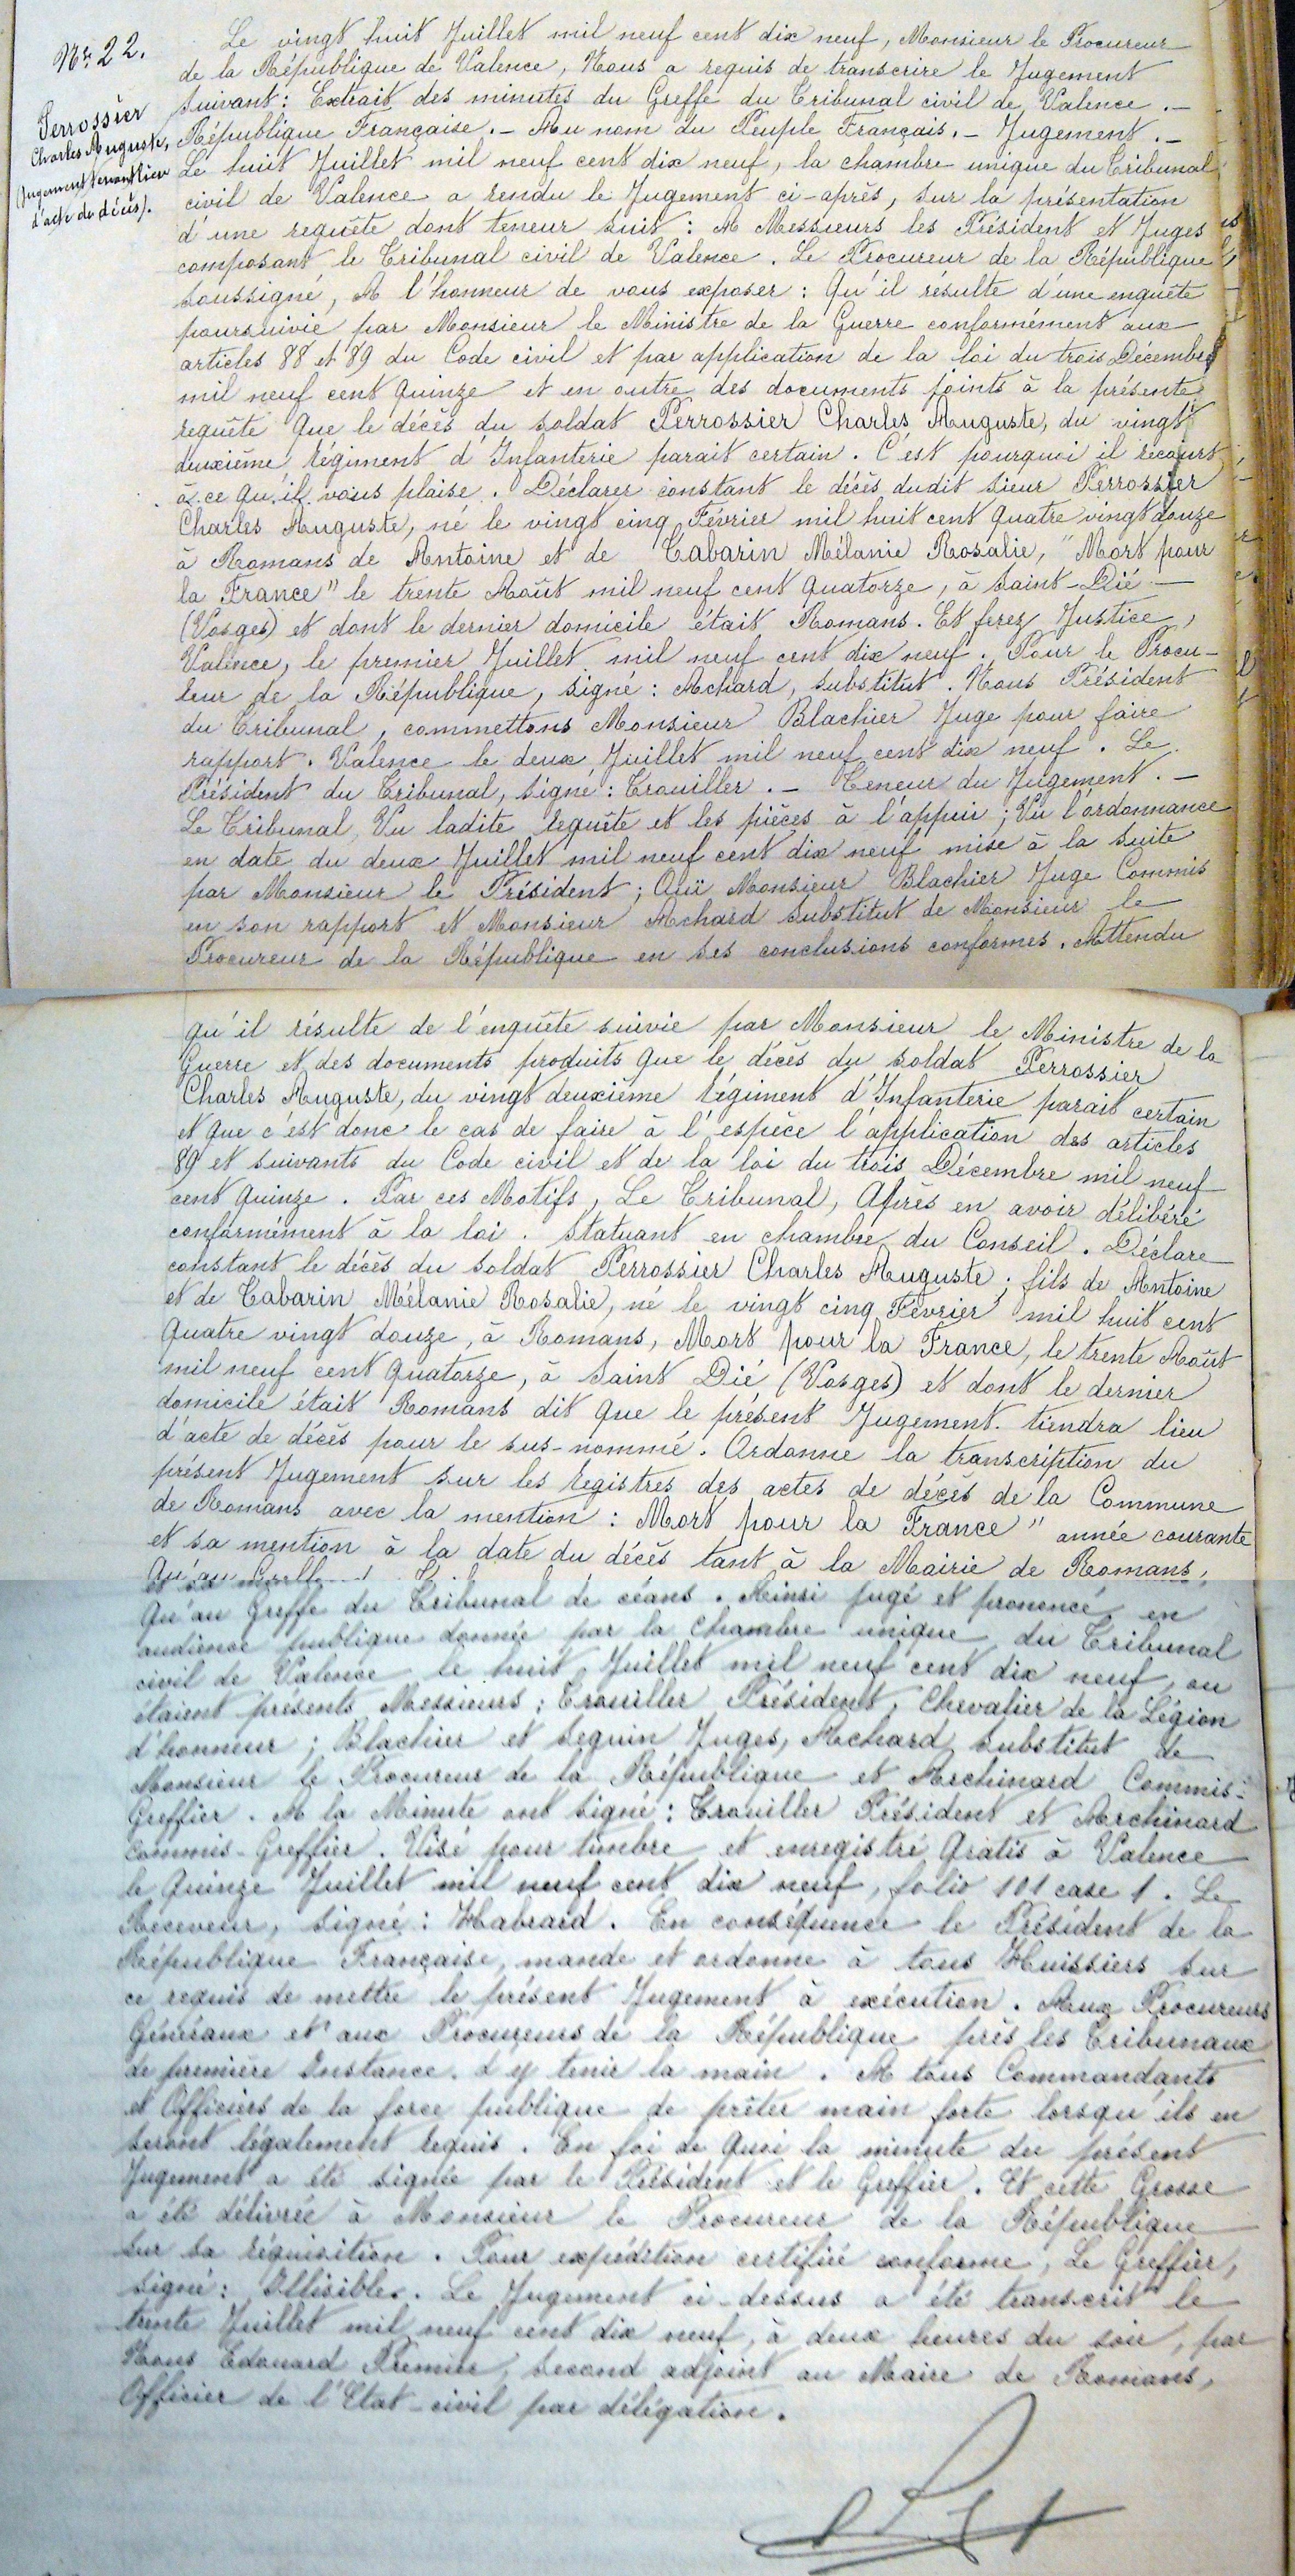 Nº 22.
Perrossier
Charles Auguste,
(Jugement tenant lieu
d'acte de décès).
Le vingt huit Juillet mil neuf cent dix neuf, Monsieur le Procureur
de la République de Valence, Nous a requis de transcrire le Jugement
suivant : Extrait des minutes du Greffe du Tribunal civil de Valence . _
République Française . _ Au nom du Peuple Français. _ Jugement . _
Le huit Juillet mil neuf cent dix neuf, la chambre unique du Tribunal
civil de Valence a rendu le Jugement ci-après, sur la présentation
d'une requête dont teneur suit : A Messieurs les Président et Juges
composant le Tribunal civil de Valence . Le Procureur de la République
soussigné, A l'honneur de vous exposer : Qu'il résulte d'une enquête
poursuivie par Monsieur le Ministre de la Guerre conformément aux
articles 88 et 89 du Code civil et par application de la loi du trois Décembre
mil neuf cent quinze et en outre des documents joints à la présente
requête que le décès du soldat Perrossier Charles Auguste, du vingt
deuxième régiment d'Infanterie parait certain . C'est pourquoi il recourt
à ce qu'il vous plaise . Déclarer constant le décès dudit sieur Perrossier
Charles Auguste, né le vingt cinq Février mil huit cent quatre vingt douze
à Romans de Antoine et de Tabarin Mélanie Rosalie, "Mort pour
la France" le trente Août mil neuf cent quatorze, à Saint-Dié _
(Vosges) et dont le dernier domicile était Romans. Et ferez Justice,
Valence, le premier Juillet mil neuf cent dix neuf. Pour le Procu-
reur de la République, signé : Achard, substitut . Nous Président
du Tribunal, commettons Monsieur Blachier Juge pour faire
rapport . Valence le deux Juillet mil neuf cent dix neuf . Le
Président du Tribunal, signé : Trouiller . _ Teneur du Jugement . _
Le Tribunal, Vu ladite requête et les pièces à l'appui ; Vu l'ordonnance
en date du deux Juillet mil neuf cent dix neuf mise à la suite
par Monsieur le Président ; Ouï Monsieur Blachier Juge Commis
en son rapport et Monsieur Achard substitut de Monsieur le
Procureur de la République en ses conclusions conformes . Attendu
qu'il résulte de l'enquête suivie par Monsieur le Ministre de la
Guerre et des documents produits que le décès du soldat Perrossier
Charles Auguste, du vingt deuxième régiment d'Infanterie parait certain
et que c'est donc le cas de faire à l'espèce l'application des articles
89 et suivants du Code civil et de la loi du trois Décembre mil neuf
cent quinze . Par ces Motifs, Le Tribunal, Après en avoir délibéré
conformément à la loi . Statuant en chambre du Conseil . Déclare
constant le décès du soldat Perrossier Charles Auguste ; fils de Antoine
et de Tabarin Mélanie Rosalie, né le vingt cinq Février mil huit cent
quatre vingt douze, à Romans, Mort pour la France, le trente Août
mil neuf cent quatorze, à Saint Dié (Vosges) et dont le dernier
domicile était Romans dit que le présent Jugement tiendra lieu
d'acte de décès pour le sus-nommé . Ordonne la transcription du
présent Jugement sur les registres des actes de décès de la Commune
de Romans avec la mention : Mort pour la France" année courante
et sa mention à la date du décès tant à la Mairie de Romans,
Qu'au Greffe du Tribunal de céans . Ainsi jugé et prononcé en
audience publique donnée par la chambre unique du Tribunal
civil de Valence le huit Juillet mil neuf cent dix neuf, ou
étaient présents Messieurs : Trouiller Président, Chevalier de la Légion
d'honneur ; Blachier et Seguin Juges, Achard substitut de
Monsieur le Procureur de la République et Archinard Commis-
Greffier . A la Minute ont signé : Trouiller Président et Archinard
commis-Greffier . Visé pour timbre et enregistré Gratis à Valence
le quinze Juillet mil neuf cent dix neuf, folio 101 case 1 . Le
Receveur, signé : Habrard . En conséquence le Président de la
République Française, mande et ordonne à tous Huissiers sur
ce requis de mettre le présent Jugement à exécution . Aux Procureurs
Généraux et aux Procureurs de la République près les Tribunaux
de première Instance . d'y tenir la main . A tous Commandants
et Officiers de la force publique de prêter main forte lorsqu'ils en
seront légalement requis . En foi de quoi la minute du présent
Jugement a été signée par le Président et le Greffier . Et cette Grosse
a été délivrée à Monsieur le Procureur de la République
sur sa réquisition . Pour expédition certifiée conforme, Le Greffier,
signé : Illisible . Le Jugement ci-dessus a été transcrit le
trente Juillet mil neuf cent dix neuf, à deux heures du soir, par
Nous Edouard Premier, second adjoint au Maire de Romans,
Officier de l'Etat-civil par délégation .